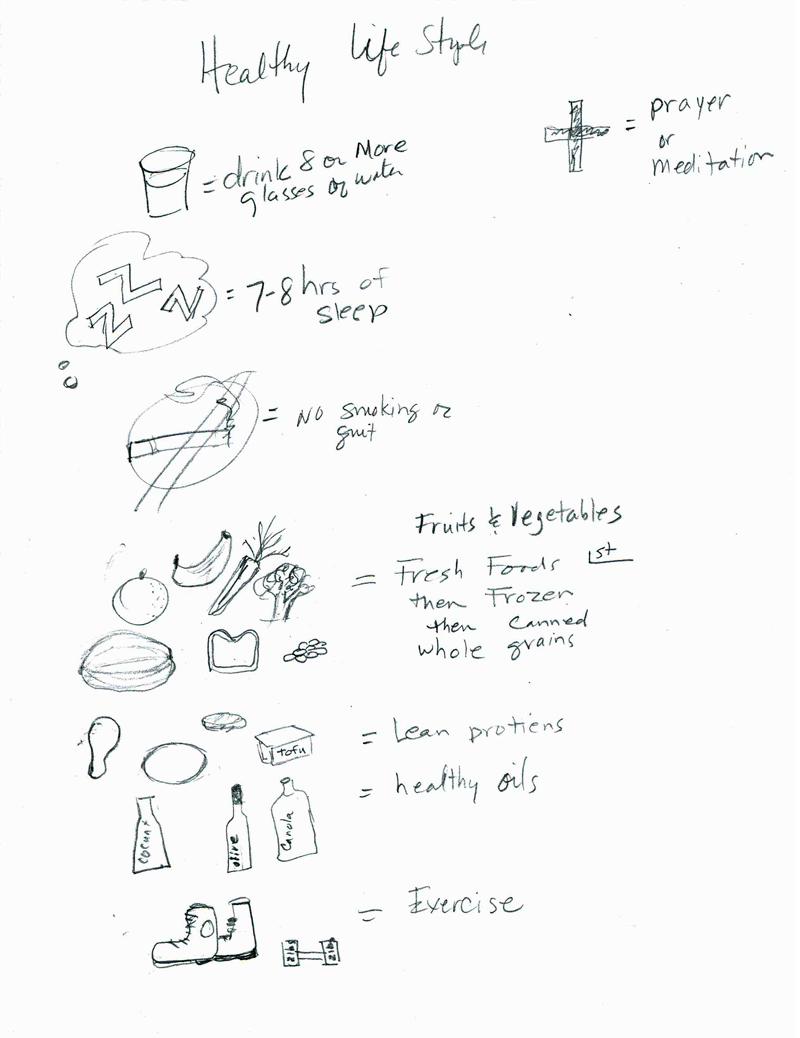 Healthy Life Style
= prayer
or
meditation
= drink 8 or More
glasses of water
ZZZ
= 7-8 hrs of
sleep
= NO smoking or
quit
Fruits & Vegetables
= Fresh Foods 1st
then Frozen
then canned
whole grains
tofu
= Lean protiens
= healthy oils
olive
Canola
= Exercise
2 lbs
2 lbs